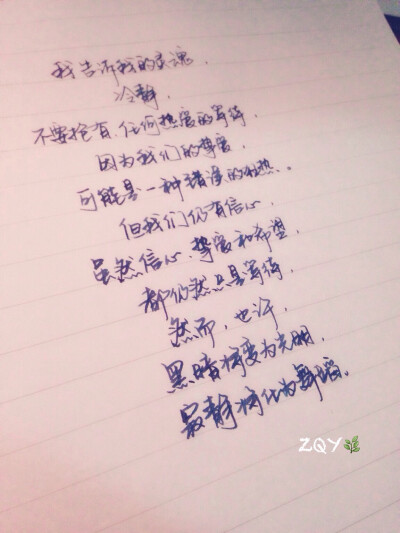 我告诉我的灵魂，
冷静，
不要抱有任何热度的等待，
因为我们的挚爱，
可能是一种错误的狂热。
但我们仍有信心，
虽然信心、挚爱和希望，
都仍然只是等待，
然而，也许，
黑暗将变为光明，
寂静将化为舞蹈。
ZQY